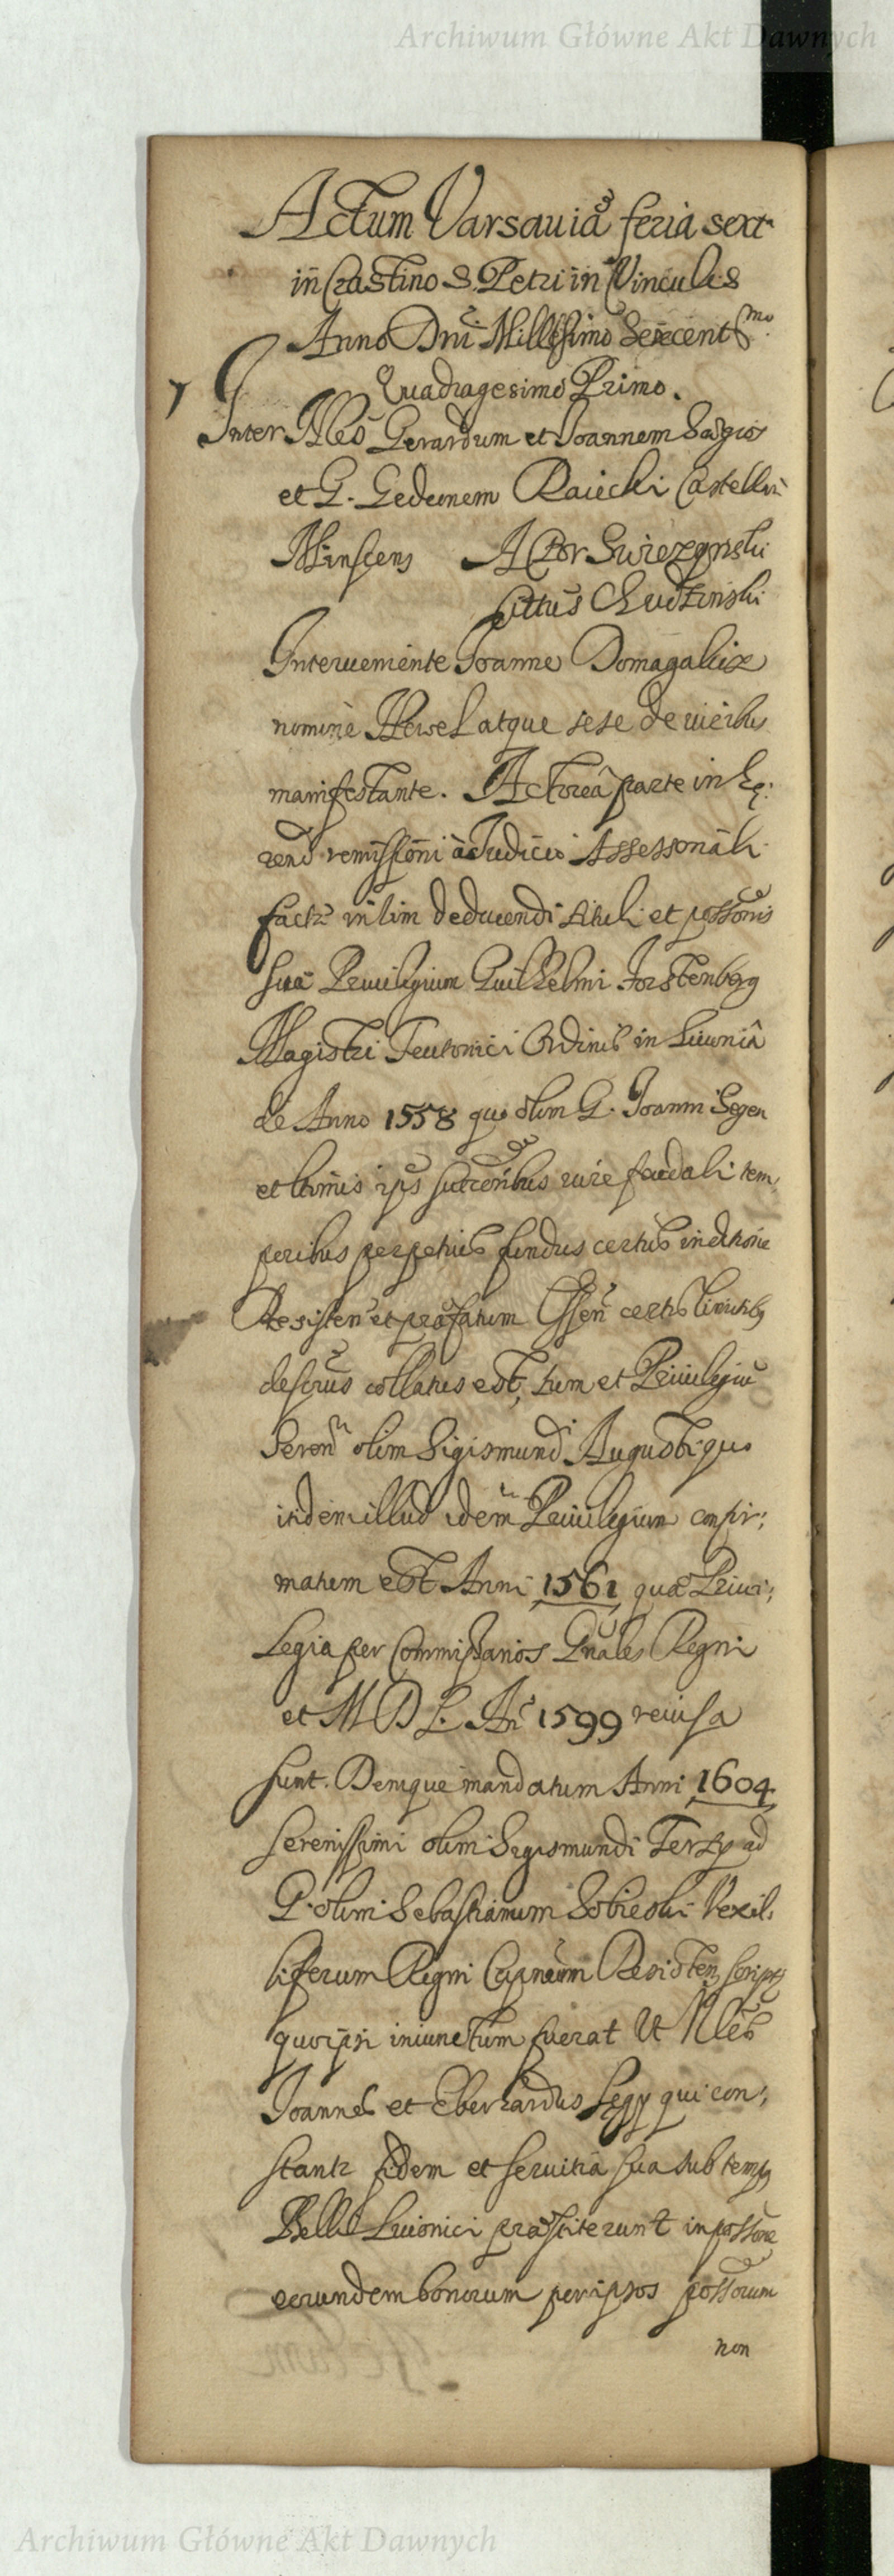 Archiwum Główne Akt Dawnych
Actum Varsauiæ feria sexta
in Crastino S. Petri in Vinculis
Anno Dni Millesimo Sexcent mo
Quadragesimo Primo.
Inter Nles Gerardum et Joannem
et G. Gedeonem Raiecki Castellan
Minscens Actor Swiezynski
Cittus Chudzinski
Interueniente Joanne Domagalicz
nomine atque sese de
manifestante. Actorea parte in
rend remissioni a Judicio Assessoriali
factæ deducendi tituli et possonis
suæ Priuilegium Guilhelmi Forstenberg
Magistri Teutonici Ordinis in Liuonia
de Anno 1558 quo olim G. Joanni Segen
et ltimis ips succoribus iure faedali tem,
poribus perpetuis fundus certus in ditione
Resisten et præfatum certis limitibus
descrus collatus est, tum et Priuilegiu
Seren olim Sigismundi Augusti quo
itidem illud idem Priuilegium confir;
matum est Anni 1561 quæ Priui;
legia per Commissarios Gnales Regni
et M D L. An 1599 reuisa
sunt. Denique mandatum Anni 1604
Serenissimi olim Sigismundi Tertij ad
G. olim Sebastianum Sobieski Vexil,
liferum Regni Capneum Resisten script
quo ipsi iniunctum fuerat Ut Nles
Joannes et Eberhardus Segy qui con;
stante fidem et seruitia sua sub temp
Belli Liuonici præstiterunt in possone
eorundem bonorum per ipsos possorum
non
Archiwum Główne Akt Dawnych